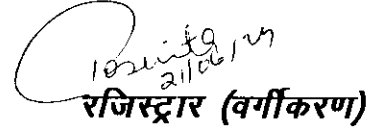 21/06/24
रजिस्ट्रार (वर्गीकरण)